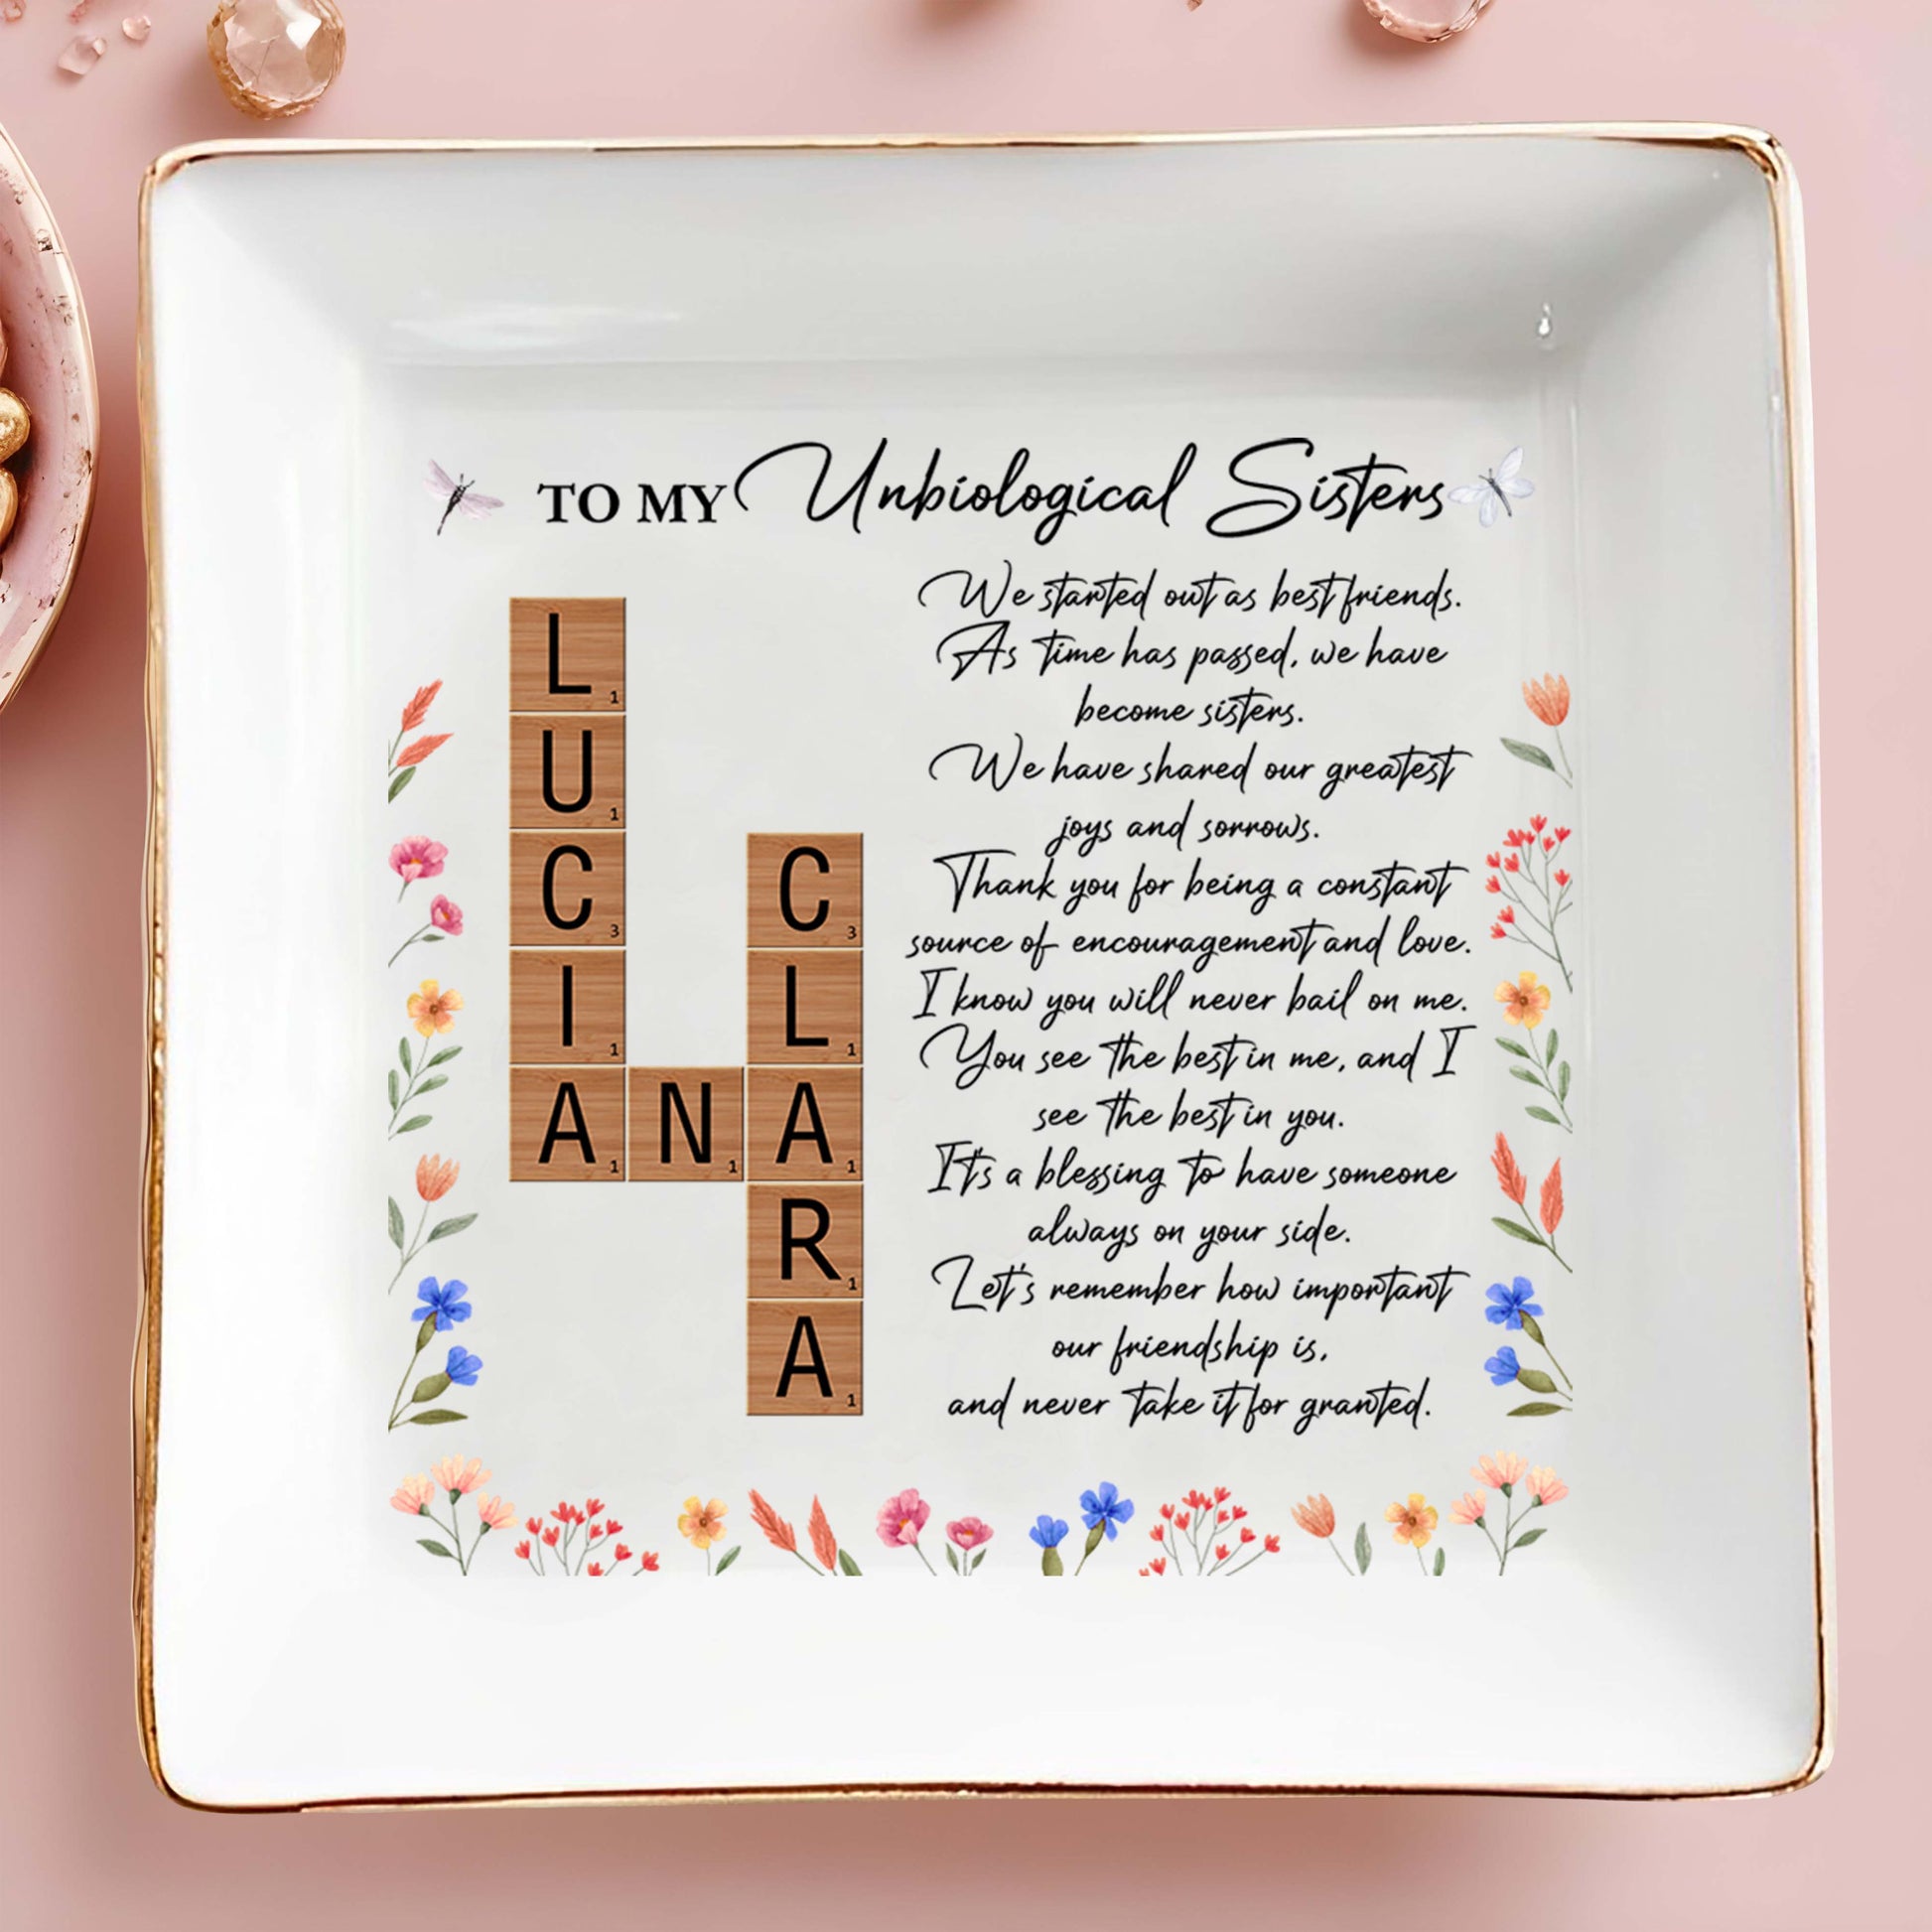 TO MY Unbiological Sisters
L1
U1
C3
I1
A1 N1 A1
C3
L1
R1
A1
We started out as best friends.
As time has passed, we have
become sisters.
We have shared our greatest
joys and sorrows.
Thank you for being a constant
source of encouragement and love.
I know you will never bail on me.
You see the best in me, and I
see the best in you.
It's a blessing to have someone
always on your side.
Let's remember how important
our friendship is,
and never take it for granted.